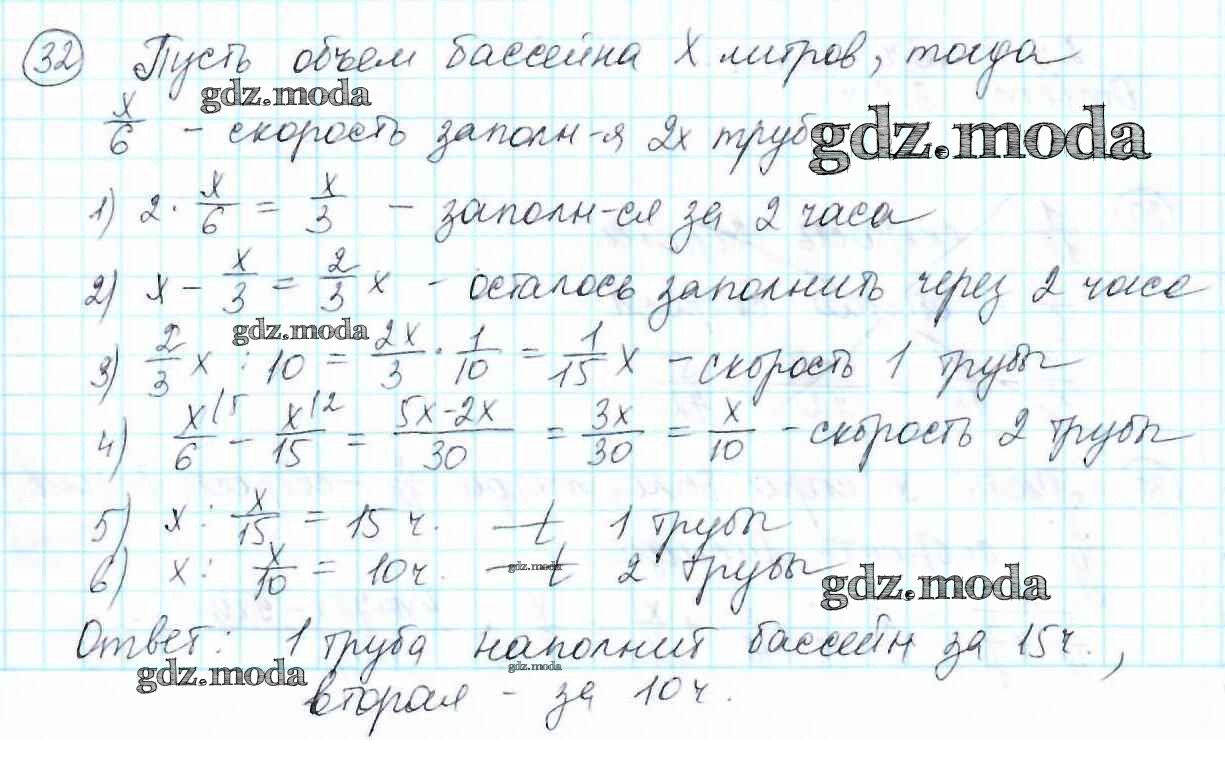 32 Пусть объем бассейна X литров, тогда
gdz.moda
x/6 - скорость заполн-я 2х труб
gdz.moda
1) 2 · x/6 = x/3 - заполн-ся за 2 часа
2) x - x/3 = 2/3 x - осталось заполнить через 2 часа
gdz.moda
3) 2/3 x : 10 = 2x/3 · 1/10 = 1/15 x - скорость 1 трубы
4) x/6 \5 - x/15 \2 = 5x-2x/30 = 3x/30 = x/10 - скорость 2 трубы
5) x : x/15 = 15 ч. - t 1 трубы
6) x : x/10 = 10ч. - t 2 трубы
gdz.moda
gdz.moda
Ответ: 1 труба наполнит бассейн за 15ч.,
gdz.moda
gdz.moda
вторая - за 10ч.